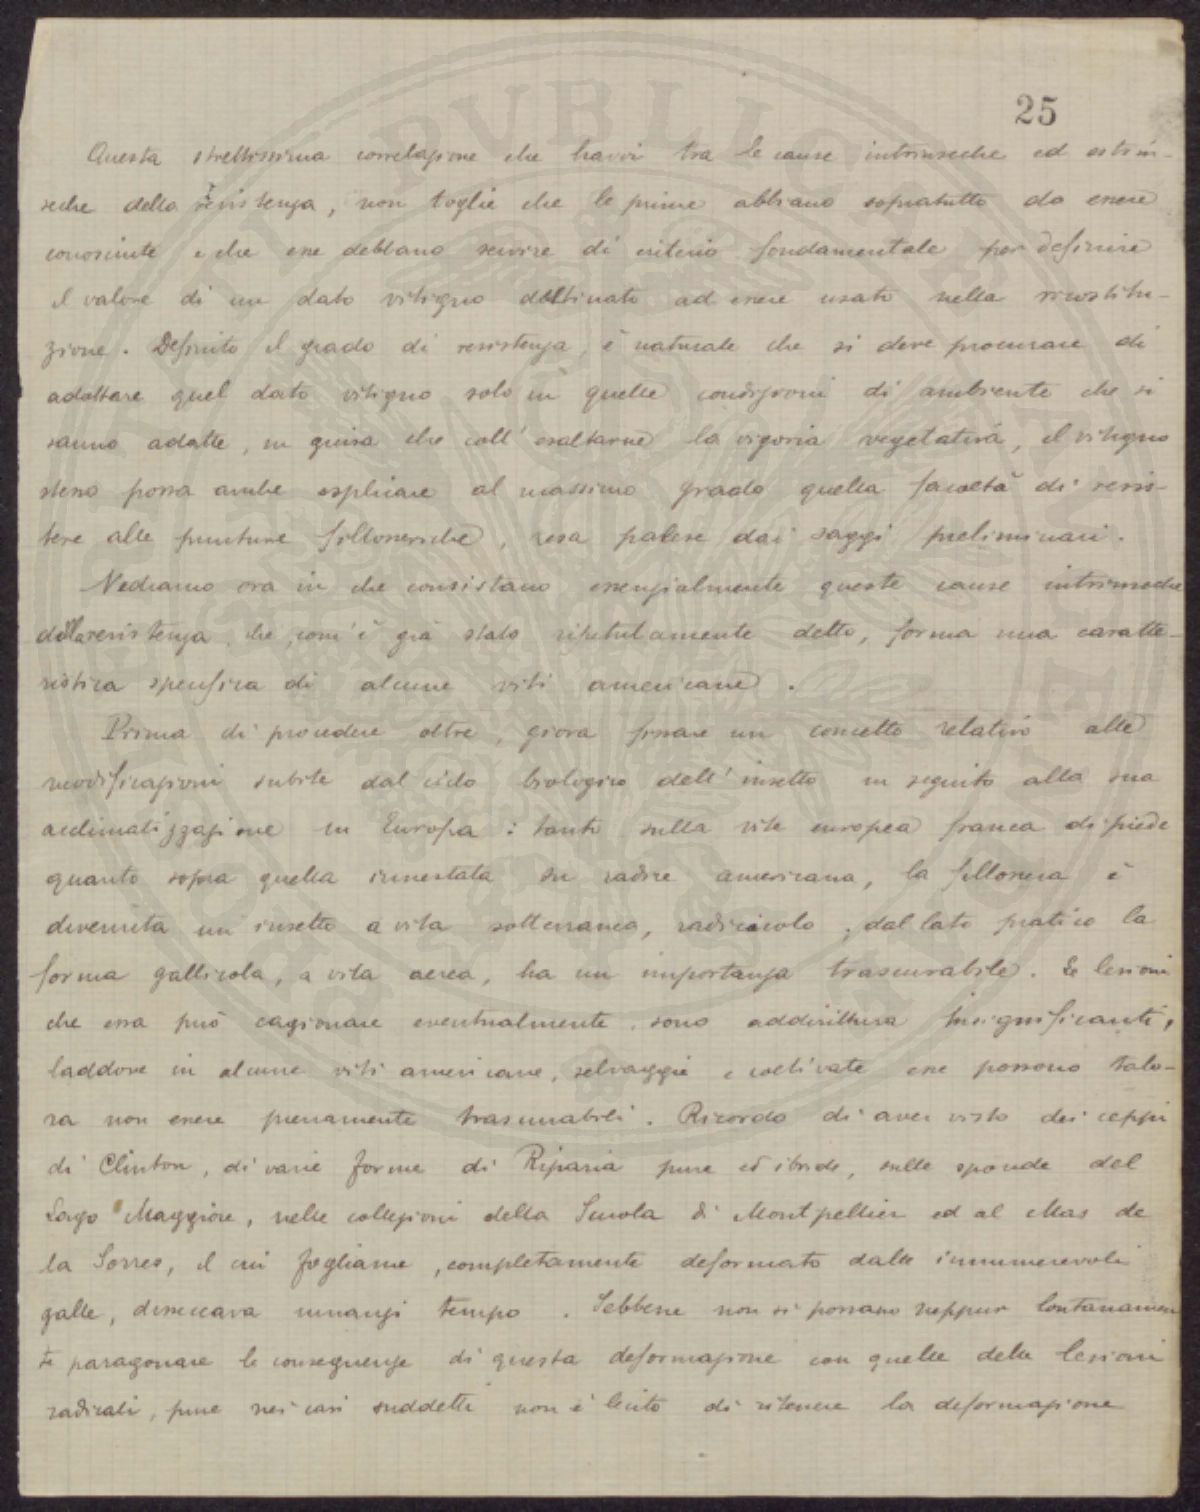 25
Questa strettissima correlazione che havvi tra le cause intrinseche ed estrin-
seche della resistenza, non toglie che le prime abbiano sopratutto da essere
conosciute e che esse debbano servire di criterio fondamentale per definire
il valore di un dato vitigno destinato ad essere usato nella ricostitu-
zione. Definito il grado di resistenza, è naturale che si deve procurare di
adottare quel dato vitigno solo in quelle condizioni di ambiente che si
sanno adatte, in guisa che coll'esaltarne la vigoria vegetativa, il vitigno
stesso possa anche esplicare al massimo grado quella facoltà di resis-
tere alle punture fillosseriche, resa palese dai saggi preliminari.
Vediamo ora in che consistano essenzialmente queste cause intrinseche
della resistenza, che, com'è già stato ripetutamente detto, forma una caratte-
ristica specifica di alcune viti americane.
Prima di procedere oltre, giova fissare un concetto relativo alle
modificazioni subite dal ciclo biologico dell'insetto in seguito alla sua
acclimatizzazione in Europa: tanto sulla vite europea franca di piede
quanto sopra quella innestata su radice americana, la fillossera è
divenuta un insetto a vita sotterranea, radicicolo; dal lato pratico la
forma gallicola, a vita aerea, ha un importanza trascurabile. Le lesioni
che essa può cagionare eventualmente, sono addirittura insignificanti,
laddove in alcune viti americane, selvaggie e coltivate esse possono talo-
ra non essere pienamente trascurabili. Ricordo di aver visto dei ceppi
di Clinton, di varie forme di Riparia pure ed ibride, sulle sponde del
Lago Maggiore, nelle collezioni della Scuola di Montpellier ed al Mas de
la Sorres, il cui fogliame, completamente deformato dalle innumerevoli
galle, disseccava innanzi tempo. Sebbene non si possano neppur lontanamen
te paragonare le conseguenze di questa deformazione con quelle delle lesioni
radicali, pure nei casi suddetti non è lecito di ritenere la deformazione